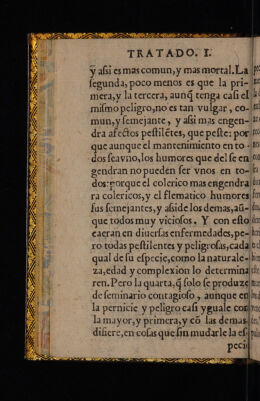 TRATADO. I.
y assi es mas comun, y mas mortal. La
segunda, poco menos es que la pri-
mera, y la tercera, aunq̃ tenga casi el
mismo peligro, no es tan vulgar, co-
mun, y semejante, y assi mas engen-
dra afectos pestilẽtes, que peste: por
que aunque el mantenimiento en to-
dos sea vno, los humores que del se en
gendran no pueden ser vnos en to-
dos: porque el colerico mas engendra
ra colericos, y el flematico humores
sus semejantes, y assi de los demas, aũ-
que todos muy viciosos. Y con esto
caeran en diuersas enfermedades, pe-
ro todas pestilentes y peligrosas, cada
qual de su especie, como la naturale-
za, edad y complexion lo determina
ren. Pero la quarta, q̃ solo se produze
de seminario contagioso, aunque en
la pernicie y peligro casi yguale con
la mayor, y primera, y cõ las demas
difiere, en cosas que sin mudarle la es-
pecie